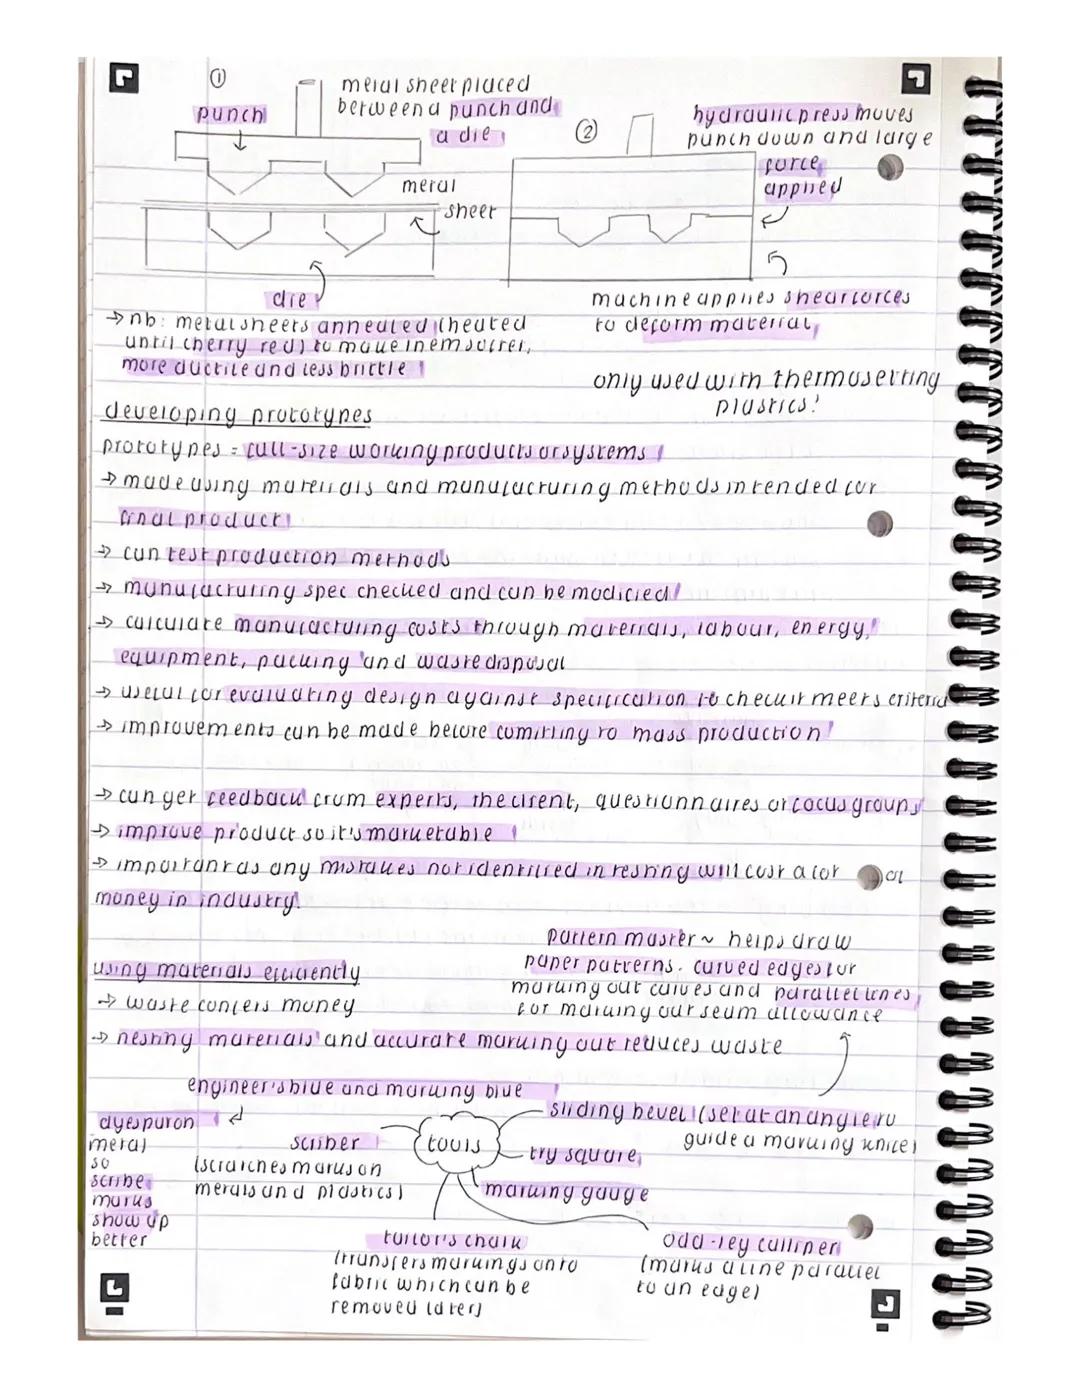 ①
punch
metal sheet placed
between a punch and
a die
metal
sheet
die
②
hydraulic press moves
punch down and large
force
applied
machine applies shear forces
to deform material
→ nb: metal sheets annealed (heated
until cherry red) to make them softer,
more ductile and less brittle
only used with thermosetting
plastics!
developing prototypes
prototypes = full-size working products or systems
→ made using materials and manufacturing methods intended for
final product
→ can test production methods
→ manufacturing spec checked and can be modified
→ calculate manufacturing costs through materials, labour, energy,
equipment, packing and waste disposal
→ useful for evaluating design against specification to check it meets criteria
→ improvements can be made before comitting to mass production
→ can get feedback from experts, the client, questionnaires or focus groups
→ improve product so it's marketable
→ important as any mistakes not identified in testing will cost a lot of
money in industry
using materials efficiently
→ waste confers money
pattern master ~ helps draw
paper patterns. curved edges for
marking out curves and parallel lines
for marking out seam allowance
→ nesting materials and accurate marking out reduces waste
engineer's blue and marking blue
dyes put on
metal
so
scribe
marks
show up
better
scriber
(scratches marks on
metals and plastics)
tools
sliding bevel (set at an angle to
guide a marking knife)
try square
marking gauge
tailor's chalk
(transfers markings onto
fabric which can be
removed later)
odd-leg calliper
(marks a line parallel
to an edge)